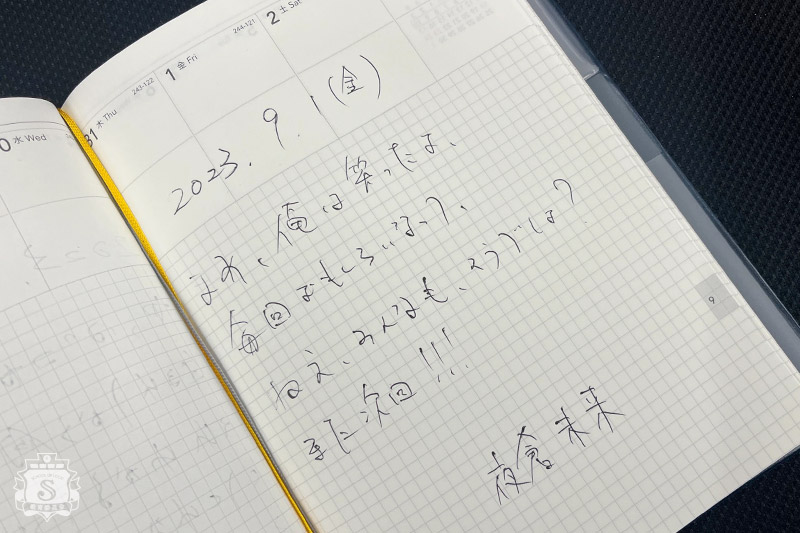 水 Wed
31 木 Thu
243-122
1 金 Fri
244-121
2 土 Sat
2023. 9. 1 (金)
まあ、俺は笑ったよ、
毎回おもしろいなって、
ねえ、みんなも、そうでしょ?
また次回!!!
夜倉 未来
9
S